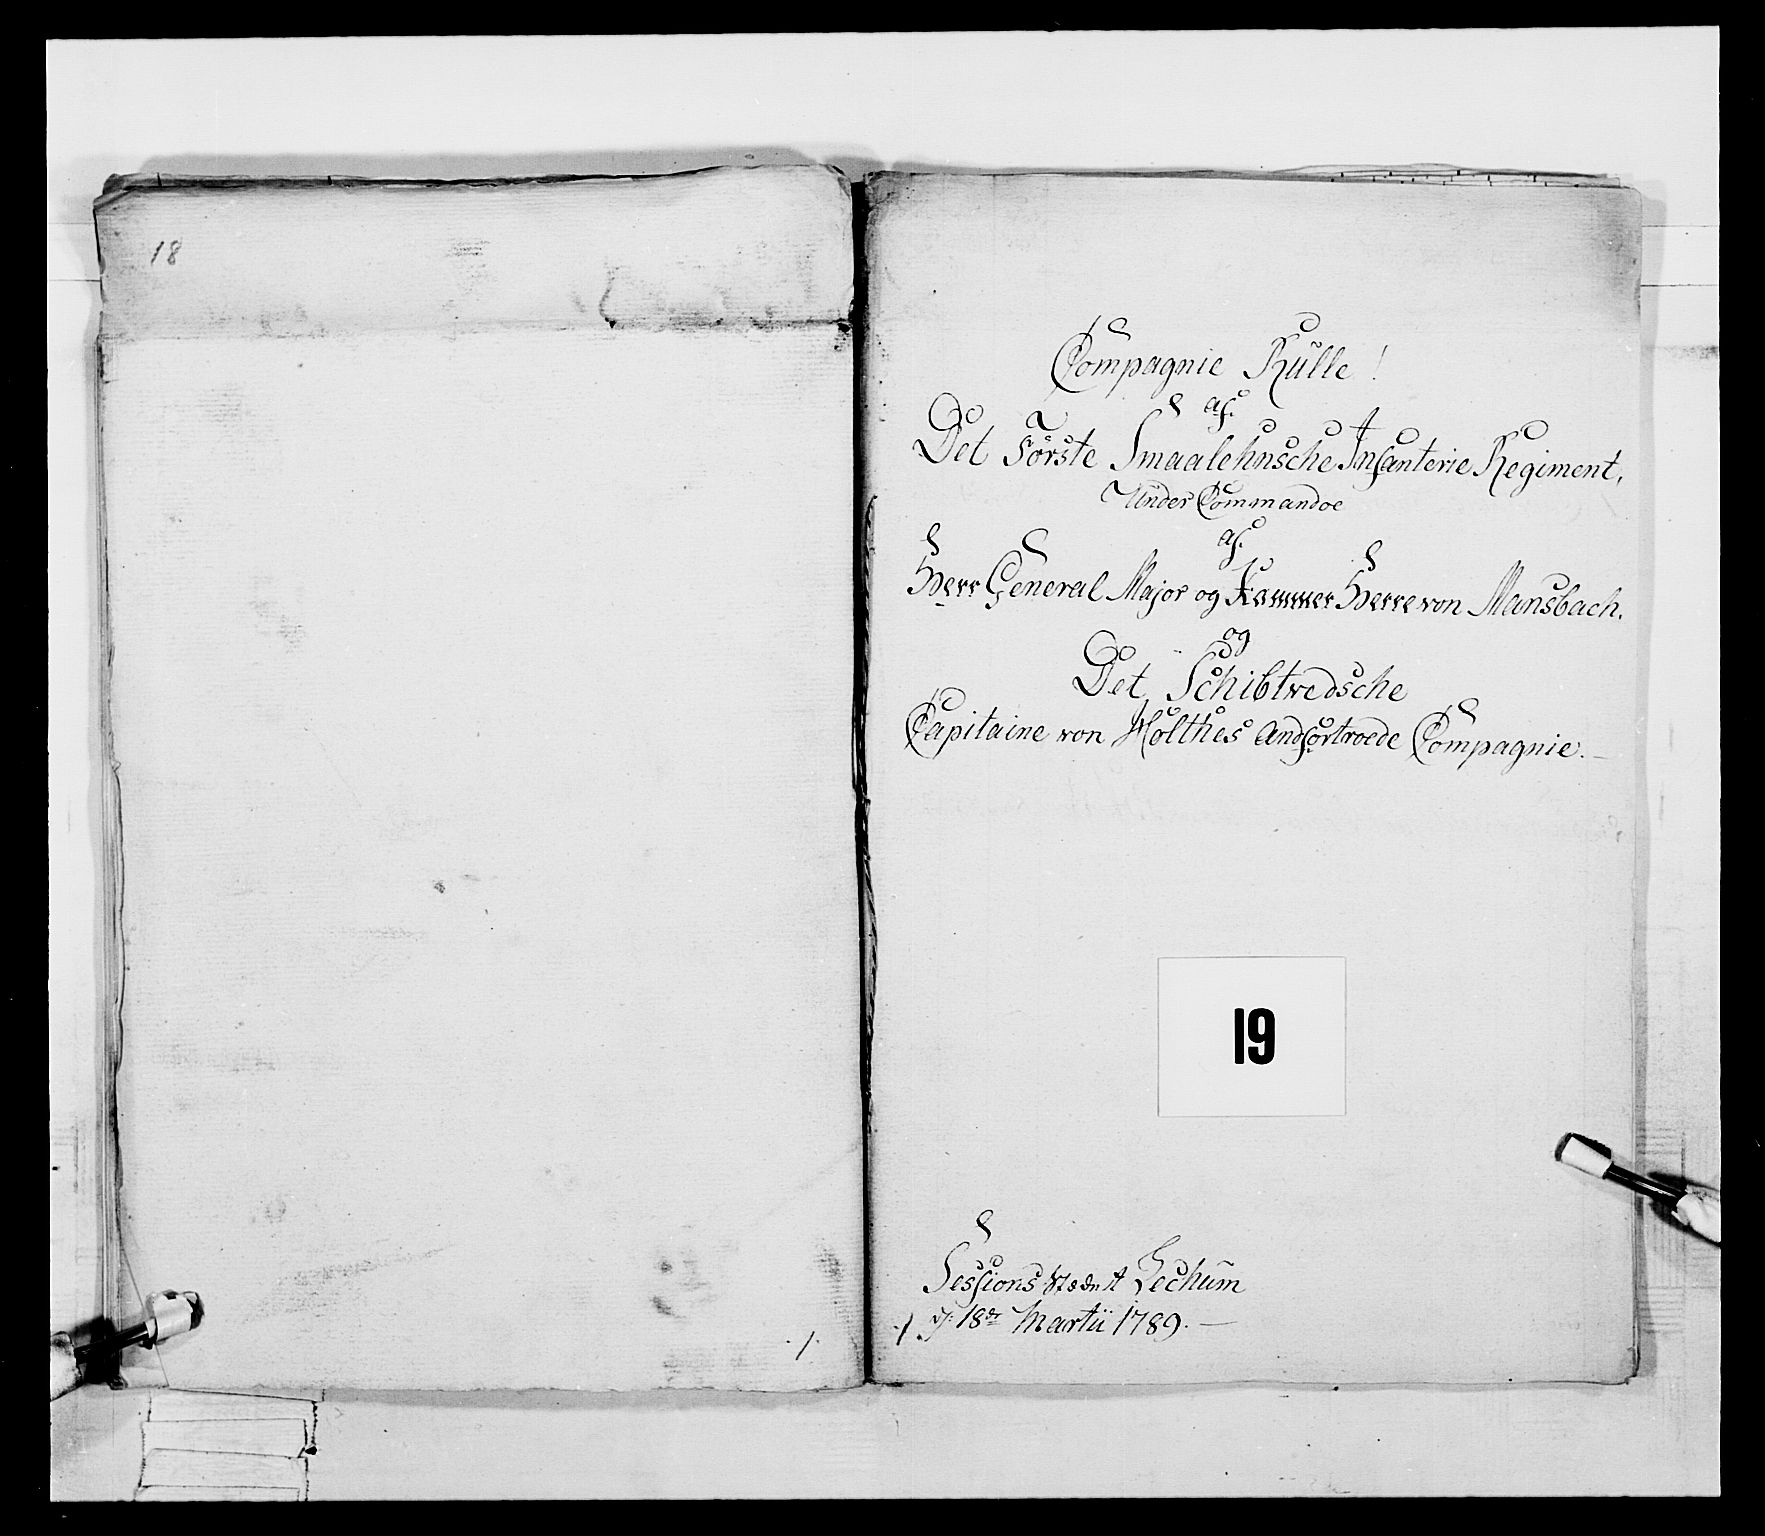 18
Compagnie Rülle!
af.
Det Første Smaalehnsche Infanterie Regiment,
Under Commandoe
af.
Herr General Major og Kammer Herre von Mansbach.
og
Det Schibtvedsche
Capitaine von Holthes Andfortroede Compagnie.
19
Sessions Stædet Lechüm
d: 18de Martii 1789.